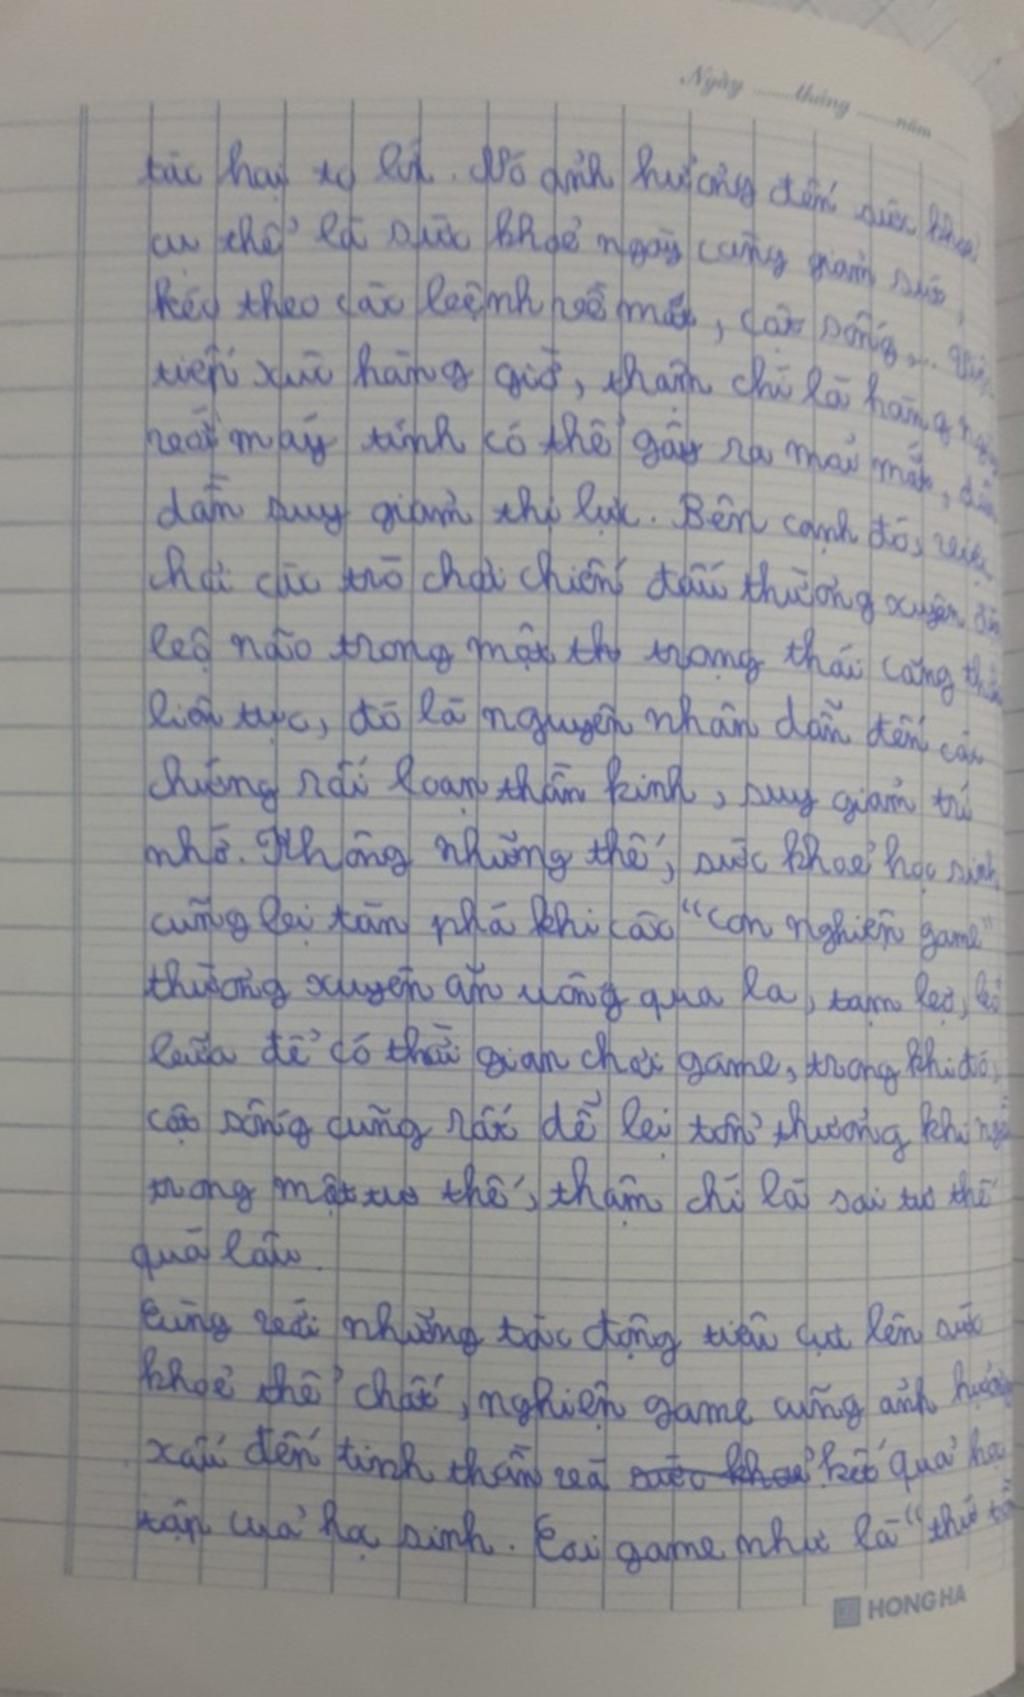 Ngày ...... tháng ...... năm
tác hại to lớn. Nó ảnh hưởng đến sức khoẻ,
cụ thể là sức khoẻ ngày càng giảm sút,
kéo theo các bệnh về mắt, cột sống, ...
tiếp xúc hàng giờ, thậm chí là hàng ngày
với máy tính có thể gây ra mỏi mắt, dần
dần suy giảm thị lực. Bên cạnh đó, việc
chơi các trò chơi chiến đấu thường xuyên
bộ não trong một th trạng thái căng thẳng
liên tục, đó là nguyên nhân dẫn đến các
chứng rối loạn thần kinh, suy giảm trí
nhớ. Không những thế, sức khoẻ học sinh
cũng bị tàn phá khi các "con nghiện game"
thường xuyên ăn uống qua loa, tạm bợ, bỏ
bữa để có thời gian chơi game, trong khi đó,
cột sống cũng rất dễ bị tổn thương khi ngồi
trong một tư thế, thậm chí là sai tư thế
quá lâu.
Cùng với những tác động tiêu cực lên sức
khoẻ thể chất, nghiện game cũng ảnh hưởng
xấu đến tinh thần và sức khoẻ kết quả học
tập của học sinh. Coi game như là "thứ
HONG HA